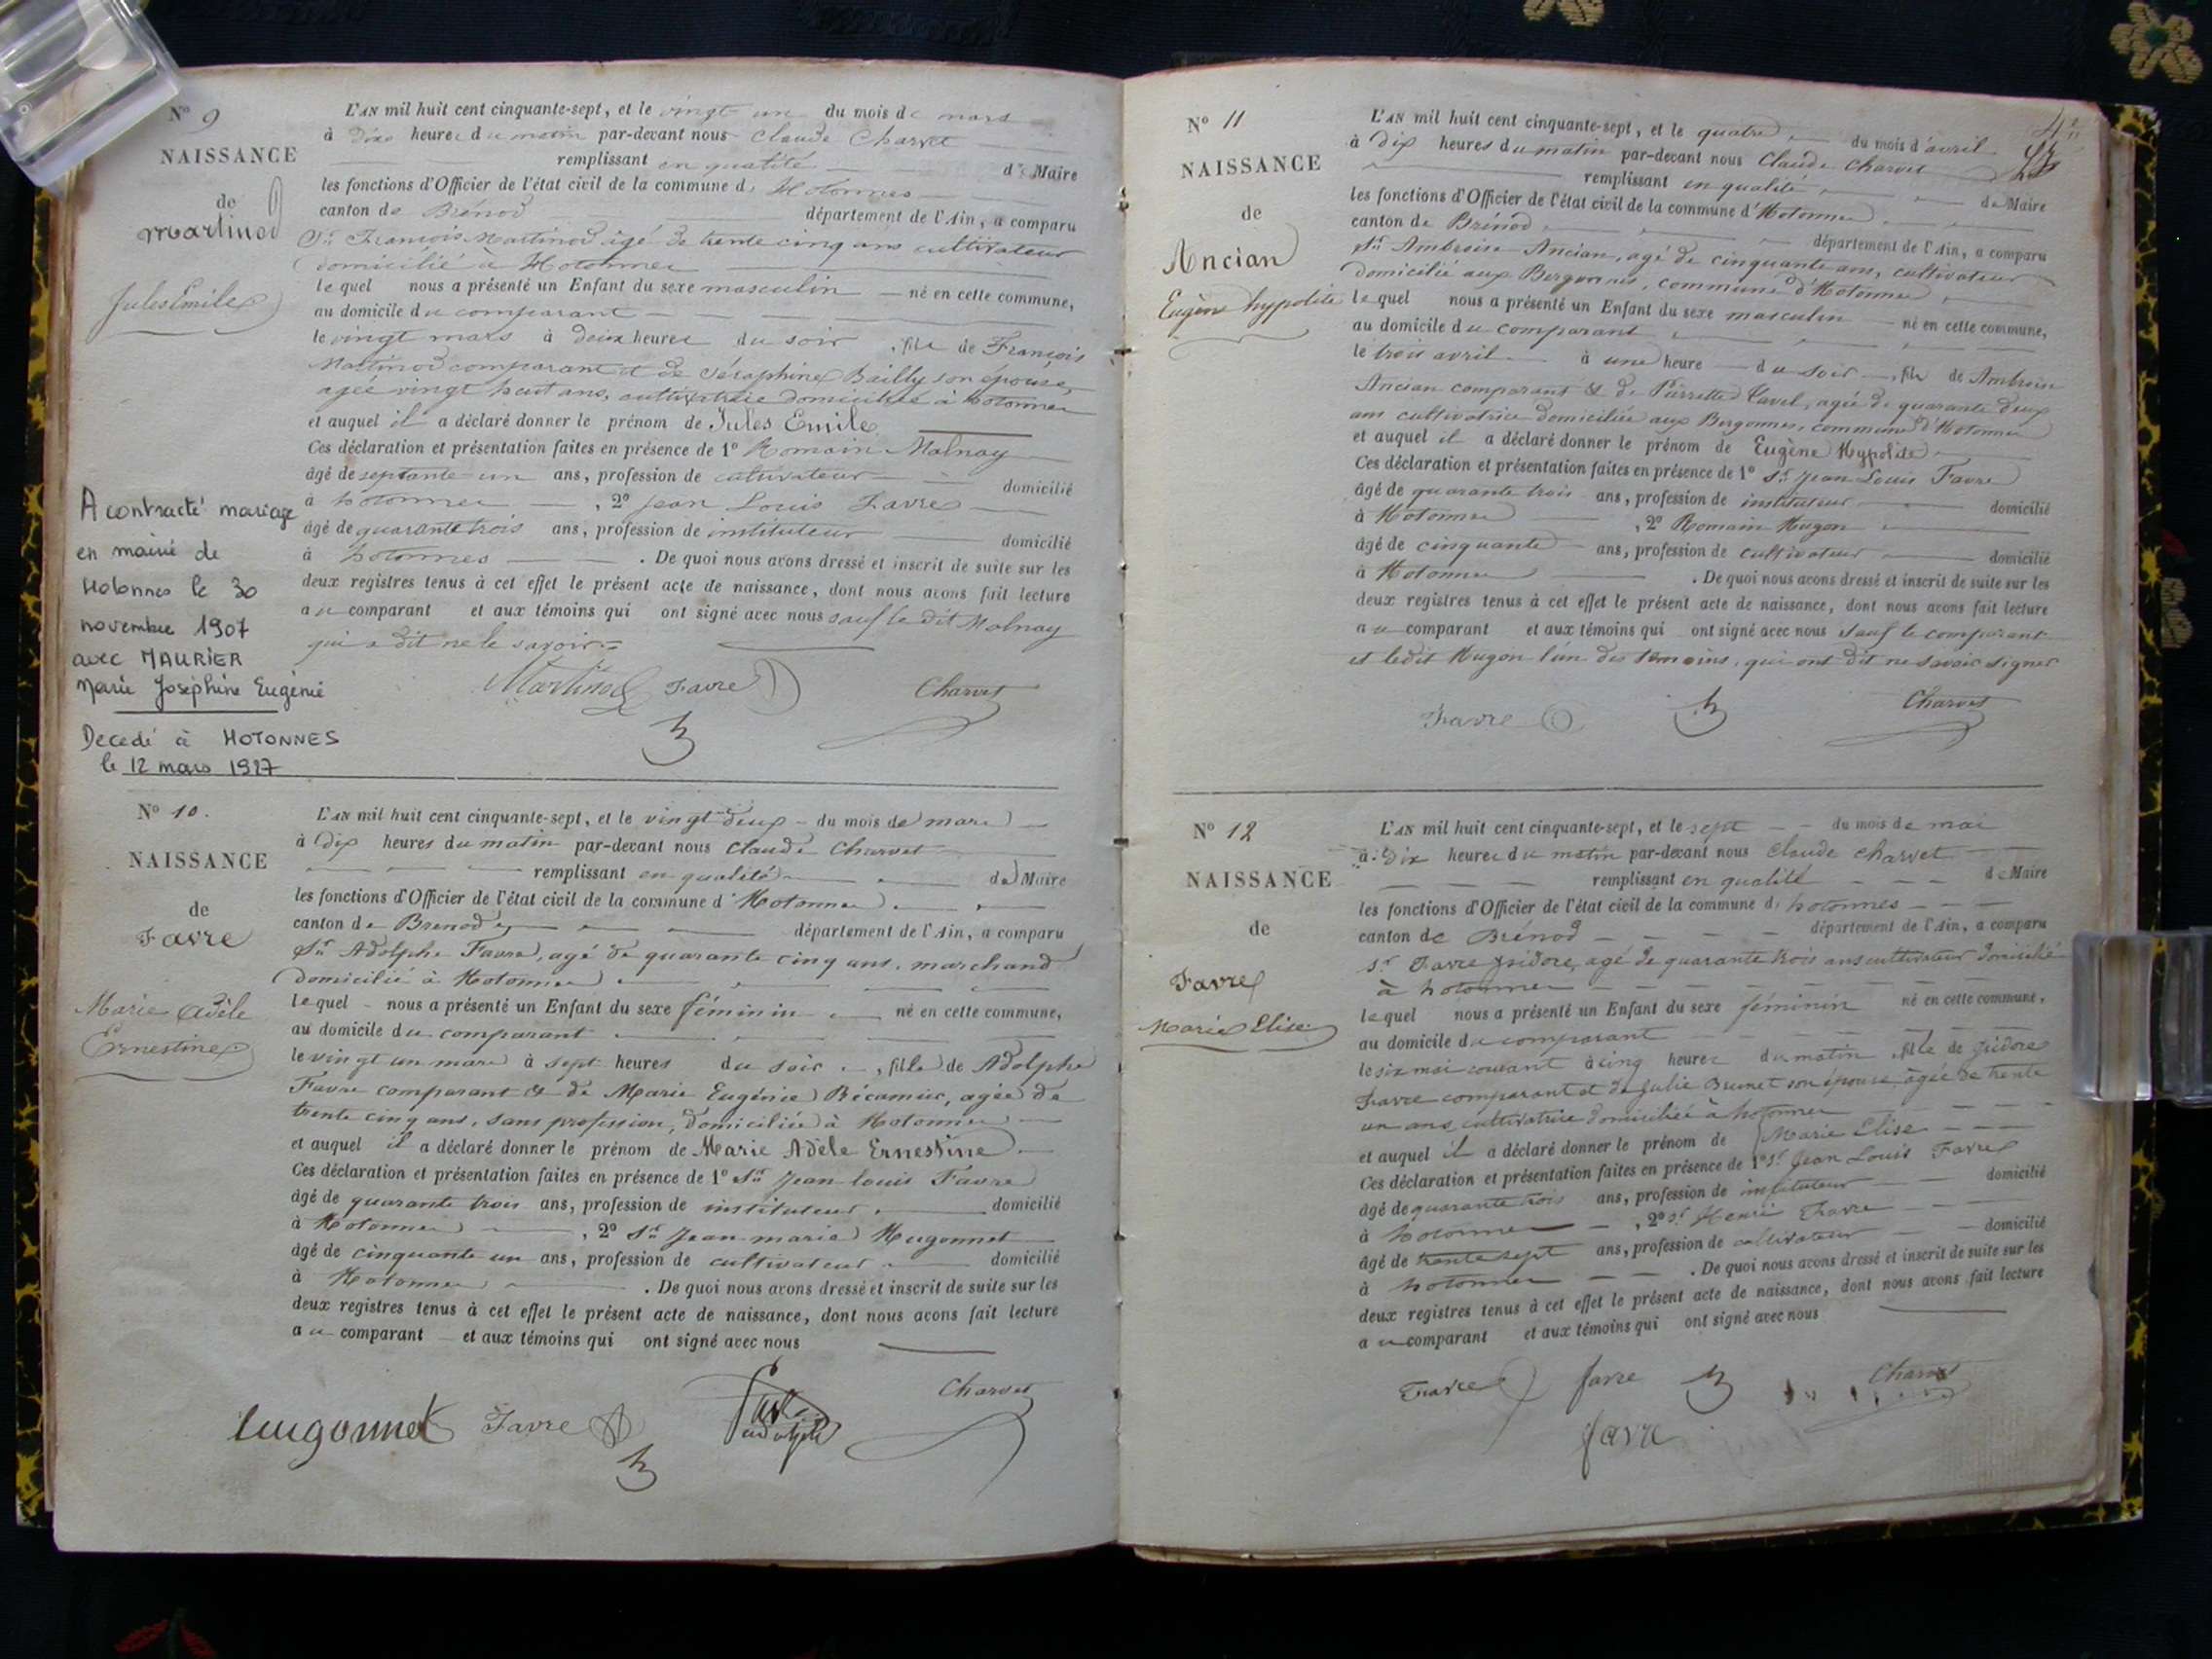 N° 9
NAISSANCE
de
Martinod
Jules Emile
A contracté mariage
en mairie de
Hotonnes le 30
novembre 1907
avec MAURIER
Marie Joséphine Eugénie
Decedé à HOTONNES
le 12 mars 1927
L'AN mil huit cent cinquante-sept, et le vingt un du mois de mars
à dix heures du matin par-devant nous Claude Charvet
remplissant en qualité de Maire
les fonctions d'Officier de l'état civil de la commune d' Hotonnes
canton de Brénod département de l'Ain, a comparu
Sr François Martinod agé de trente cinq ans cultivateur
domicilié à Hotonnes
lequel nous a présenté un Enfant du sexe masculin né en cette commune,
au domicile du comparant
le vingt mars à deux heures du soir, fils de François
Martinod comparant et de Séraphine Bailly son épouse,
agée vingt huit ans, cultivatrice domiciliée à hotonnes
et auquel il a déclaré donner le prénom de Jules Emile
Ces déclaration et présentation faites en présence de 1° Romain Malnay
âgé de septante un ans, profession de cultivateur domicilié
à hotonnes, 2° Jean Louis Favre
âgé de quarante trois ans, profession de instituteur domicilié
à hotonnes. De quoi nous avons dressé et inscrit de suite sur les
deux registres tenus à cet effet le présent acte de naissance, dont nous avons fait lecture
au comparant et aux témoins qui ont signé avec nous sauf le dit Malnay
qui a dit ne le savoir
Martinod Favre Charvet
N° 10.
NAISSANCE
de
Favre
Marie Adèle
Ernestine
L'AN mil huit cent cinquante-sept, et le vingt deux du mois de mars
à dix heures du matin par-devant nous Claude Charvet
remplissant en qualité de Maire
les fonctions d'Officier de l'état civil de la commune d'Hotonnes
canton de Brenod département de l'Ain, a comparu
Sr Adolphe Favre, agé de quarante cinq ans, marchand
domicilié à Hotonnes
lequel nous a présenté un Enfant du sexe féminin né en cette commune,
au domicile du comparant
le vingt un mars à sept heures du soir, fille de Adolphe
Favre comparant & de Marie Eugénie Bécamier, agée de
trente cinq ans, sans profession, domiciliée à Hotonnes
et auquel il a déclaré donner le prénom de Marie Adèle Ernestine
Ces déclaration et présentation faites en présence de 1° Sr Jean louis Favre
âgé de quarante trois ans, profession de instituteur domicilié
à Hotonnes, 2° Sr Jean marie Hugonnet
âgé de cinquante un ans, profession de cultivateur domicilié
à Hotonnes. De quoi nous avons dressé et inscrit de suite sur les
deux registres tenus à cet effet le présent acte de naissance, dont nous avons fait lecture
au comparant et aux témoins qui ont signé avec nous
hugonnet Favre Favre adolphe Charvet
N° 11
NAISSANCE
de
Ancian
Eugène hypolite
L'AN mil huit cent cinquante-sept, et le quatre du mois d'avril
à dix heures du matin par-devant nous Claude Charvet
remplissant en qualité de Maire
les fonctions d'Officier de l'état civil de la commune d'Hotonnes
canton de Brénod département de l'Ain, a comparu
Sr Ambroise Ancian, agé de cinquante ans, cultivateur
domicilié aux Bergonnes, commune d'Hotonnes
lequel nous a présenté un Enfant du sexe masculin né en cette commune,
au domicile du comparant
le trois avril à une heure du soir, fils de Ambroise
Ancian comparant & de Pierrette Cavel, agée de quarante deux
ans cultivatrice domiciliée aux Bergonnes, commune d'Hotonnes
et auquel il a déclaré donner le prénom de Eugène Hypolite
Ces déclaration et présentation faites en présence de 1° Sr Jean Louis Favre
âgé de quarante trois ans, profession de instituteur domicilié
à Hotonnes, 2° Romain Hugon
âgé de cinquante ans, profession de cultivateur domicilié
à Hotonnes. De quoi nous avons dressé et inscrit de suite sur les
deux registres tenus à cet effet le présent acte de naissance, dont nous avons fait lecture
au comparant et aux témoins qui ont signé avec nous sauf le comparant
et ledit Hugon l'un des témoins, qui ont dit ne savoir signer
Favre Charvet
N° 12
NAISSANCE
de
Favre
Marie Elise
L'AN mil huit cent cinquante-sept, et le sept du mois de mai
à dix heures du matin par-devant nous Claude Charvet
remplissant en qualité de Maire
les fonctions d'Officier de l'état civil de la commune d' hotonnes
canton de Brénod département de l'Ain, a comparu
Sr Favre Isidore, agé de quarante trois ans cultivateur domicilié
à hotonnes
lequel nous a présenté un Enfant du sexe féminin né en cette commune,
au domicile du comparant
le six mai courant à cinq heures du matin, fille de Isidore
Favre comparant et de Julie Brunet son épouse, agée de trente
un ans, cultivatrice domiciliée à hotonnes
et auquel il a déclaré donner le prénom de Marie Elise
Ces déclaration et présentation faites en présence de 1° Sr Jean Louis Favre
âgé de quarante trois ans, profession de instituteur domicilié
à hotonnes, 2° Sr Henri Favre
âgé de trente sept ans, profession de cultivateur domicilié
à hotonnes. De quoi nous avons dressé et inscrit de suite sur les
deux registres tenus à cet effet le présent acte de naissance, dont nous avons fait lecture
au comparant et aux témoins qui ont signé avec nous
Favre favre Charvet
favre